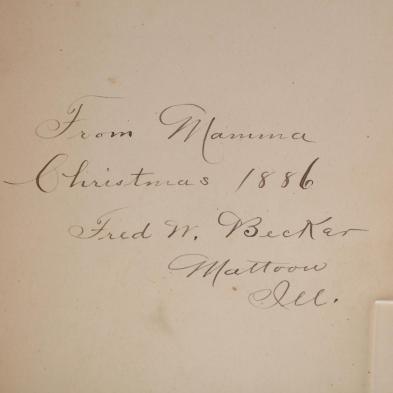 From Mamma
Christmas 1886
Fred W. Becker
Mattoon
Ill.